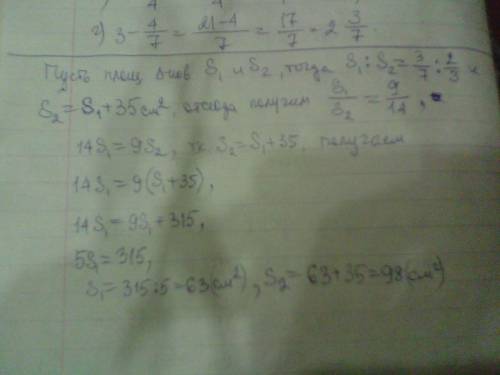 г) 3 - 4/7 = 21-4/7 = 17/7 = 2 3/7.
Пусть площ Δнов S₁ и S₂, тогда S₁ : S₂ = 3/7 : 2/3 и
S₂ = S₁ + 35 см², отсюда получим S₁/S₂ = 9/14,
14S₁ = 9S₂, т.к. S₂ = S₁ + 35, получаем
14S₁ = 9(S₁ + 35),
14S₁ = 9S₁ + 315,
5S₁ = 315,
S₁ = 315:5 = 63(см²), S₂ = 63 + 35 = 98(см²)